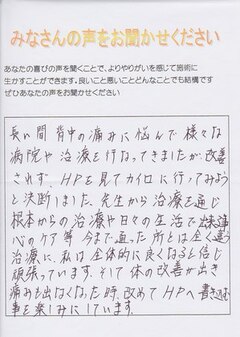 みなさんの声をお聞かせください
あなたの喜びの声を聞くことで、よりやりがいを感じて施術に
生かすことができます。良いこと悪いことどんなことでも結構です
ぜひあなたの声をお聞かせください
長い間 背中の痛みに悩んで 様々な
病院や治療を行なってきましたが、改善
されず、HPを見てカイロに行ってみよう
と決断しました。先生から治療を通じ
根本からの治療や日々の生活で出来る
心のケア等 今まで通った所とは全く違う
治療に、私は全体的に良くなると信じ
頑張っています。そして体の改善が出き
痛みも出なくなった時、改めてHPへ書き込む
事を楽しみにしています。